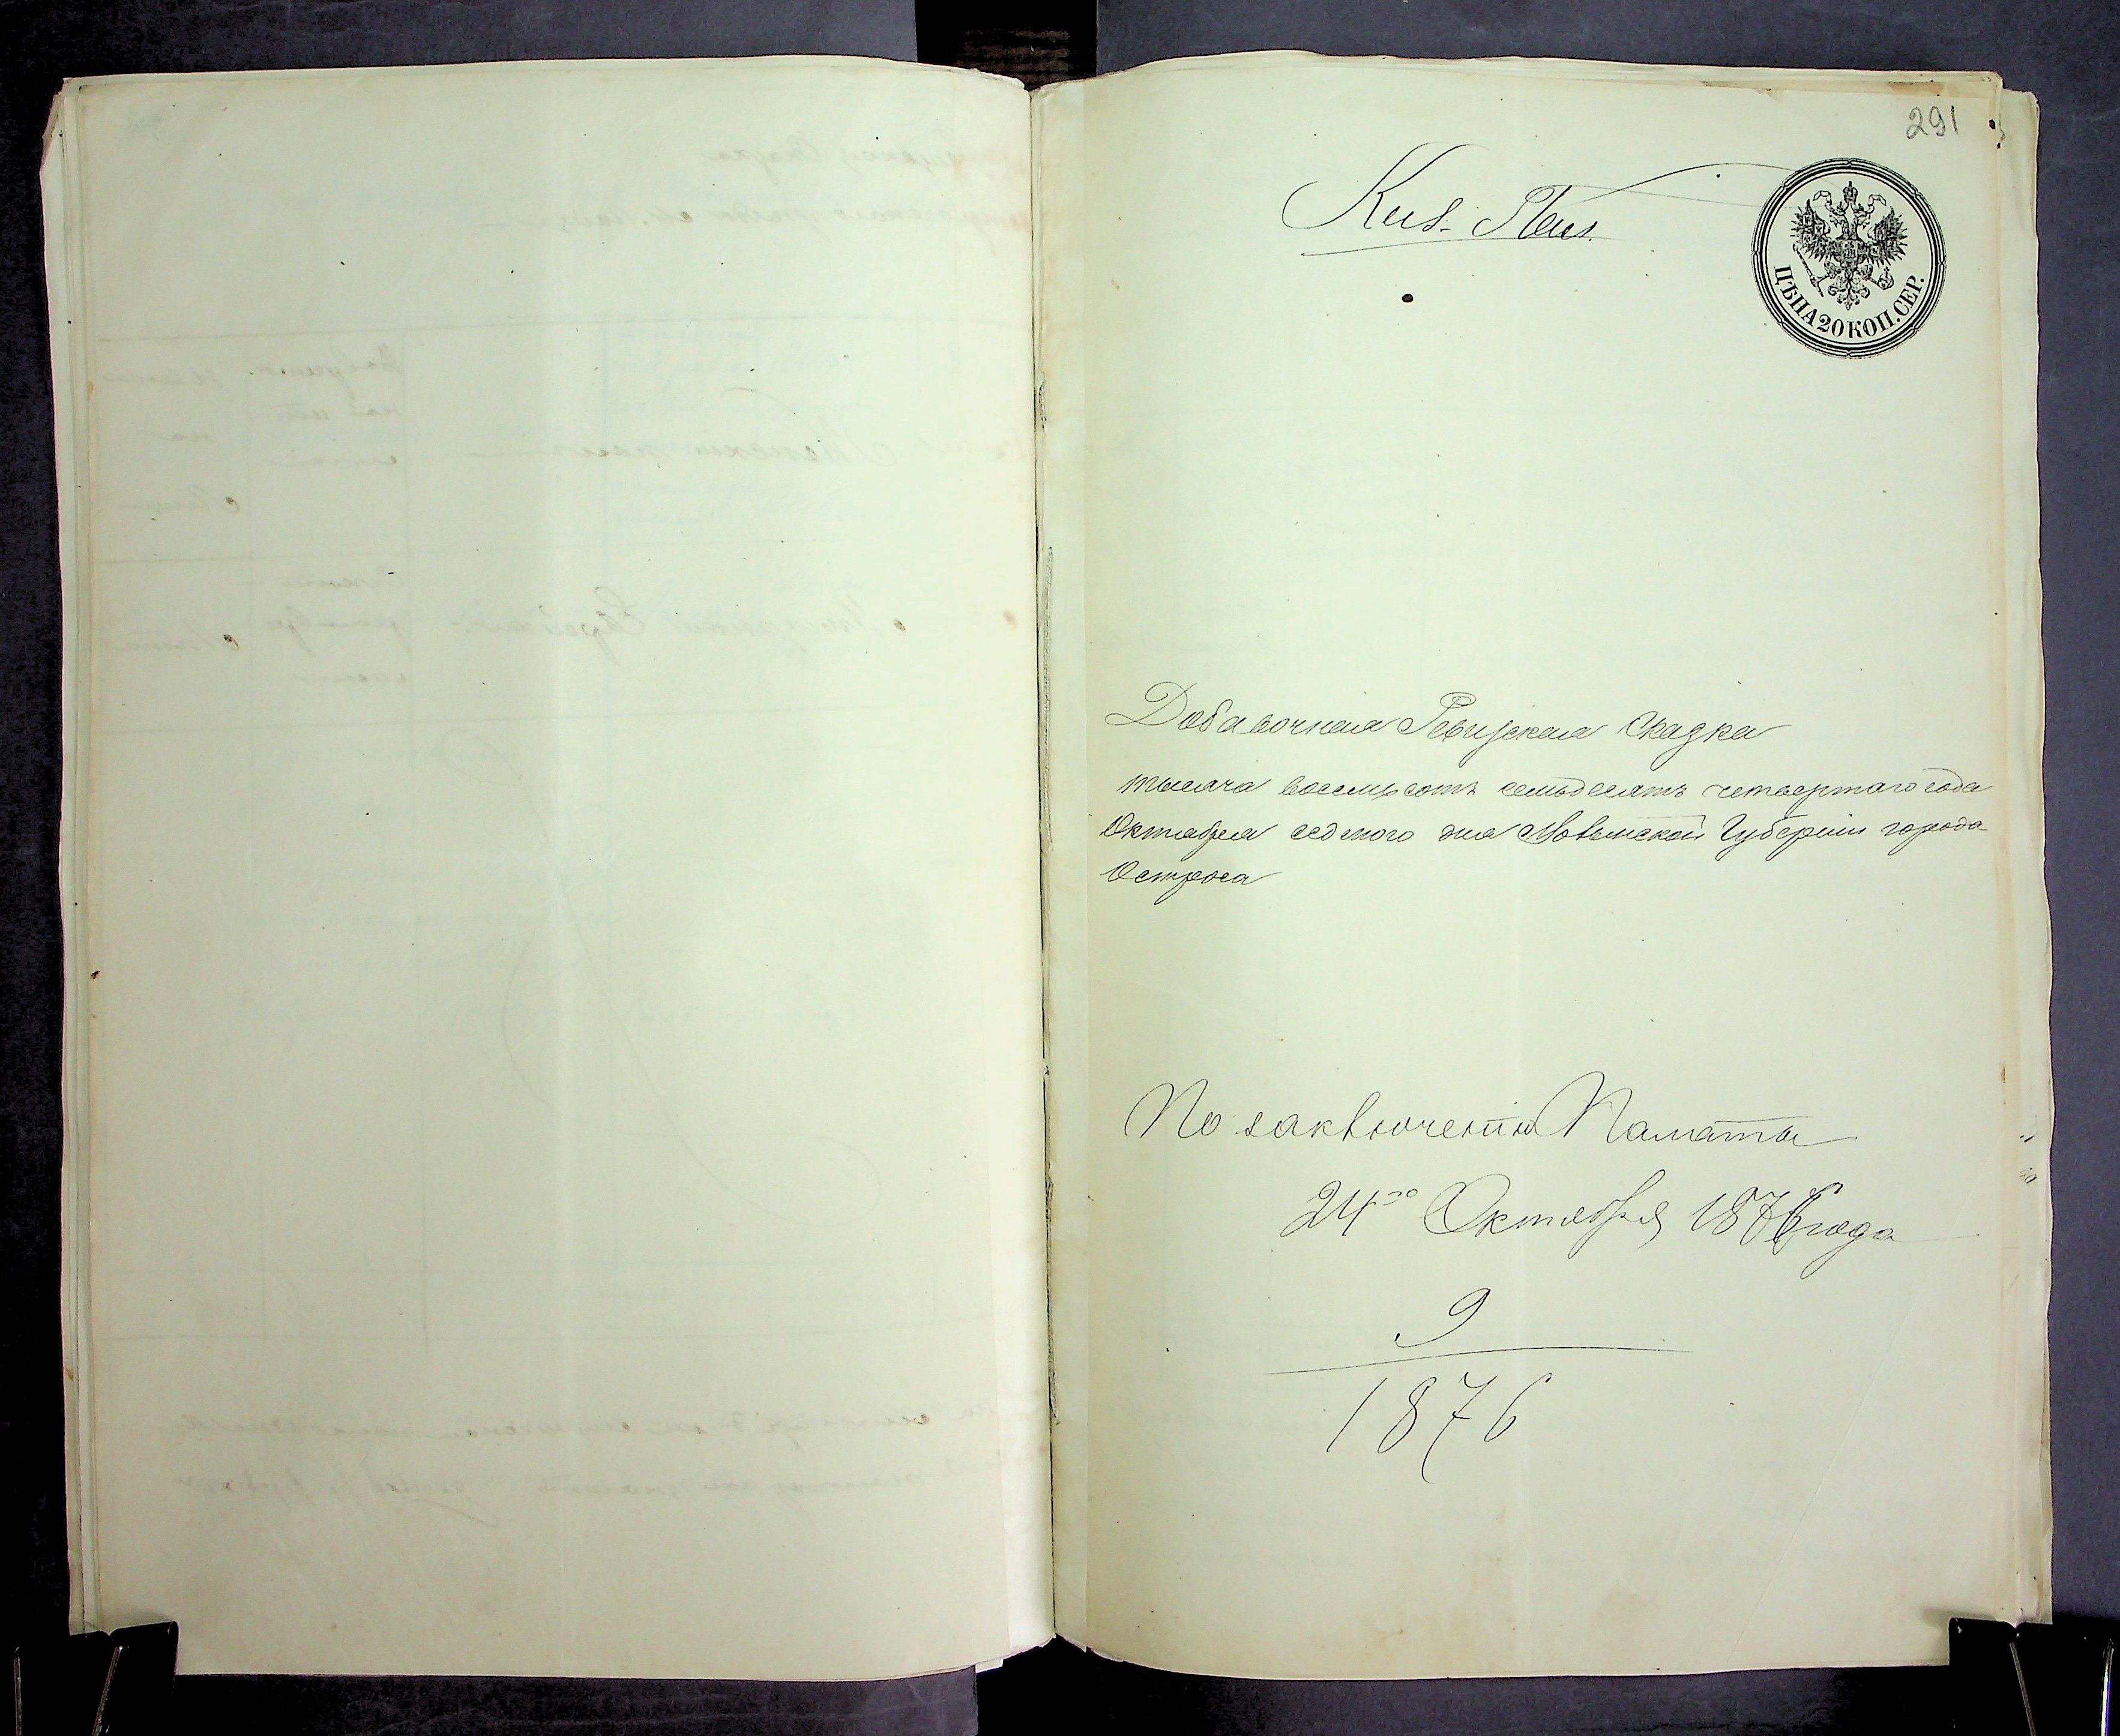 291
ЦѢНА 20 КОП. СЕР.
Добавочная Ревизская Сказка
тысяча восемьсотъ семьдесятъ четвертаго года
Октября седмого дня Волынской Губерніи города
Острога
По заключенію Палаты
24го Октября 1876 года
9
1876